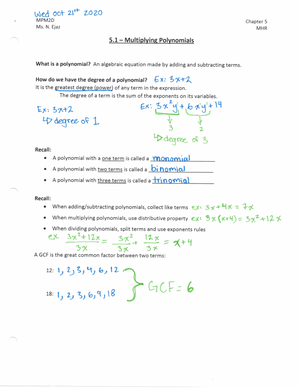 Wed Oct 21st 2020
MPM2D
Chapter 5
Ms. N. Ejaz
MHR
5.1 – Multiplying Polynomials
What is a polynomial? An algebraic equation made by adding and subtracting terms.
How do we have the degree of a polynomial? Ex: 3x+2
It is the greatest degree (power) of any term in the expression.
The degree of a term is the sum of the exponents on its variables.
Ex: 3x+2
↳ degree of 1
Ex: 3x²y¹ + 6x¹y¹ + 14
3 2
↳ degree of 3
Recall:
• A polynomial with a one term is called a monomial
• A polynomial with two terms is called a binomial
• A polynomial with three terms is called a trinomial
Recall:
• When adding/subtracting polynomials, collect like terms ex: 3x+4x = 7x
• When multiplying polynomials, use distributive property ex: 3x(x+4) = 3x²+12x
• When dividing polynomials, split terms and use exponents rules
ex. 3x²+12x / 3x = 3x² / 3x + 12x / 3x = x+4
A GCF is the great common factor between two terms:
12: 1, 2, 3, 4, 6, 12
18: 1, 2, 3, 6, 9, 18
GCF = 6